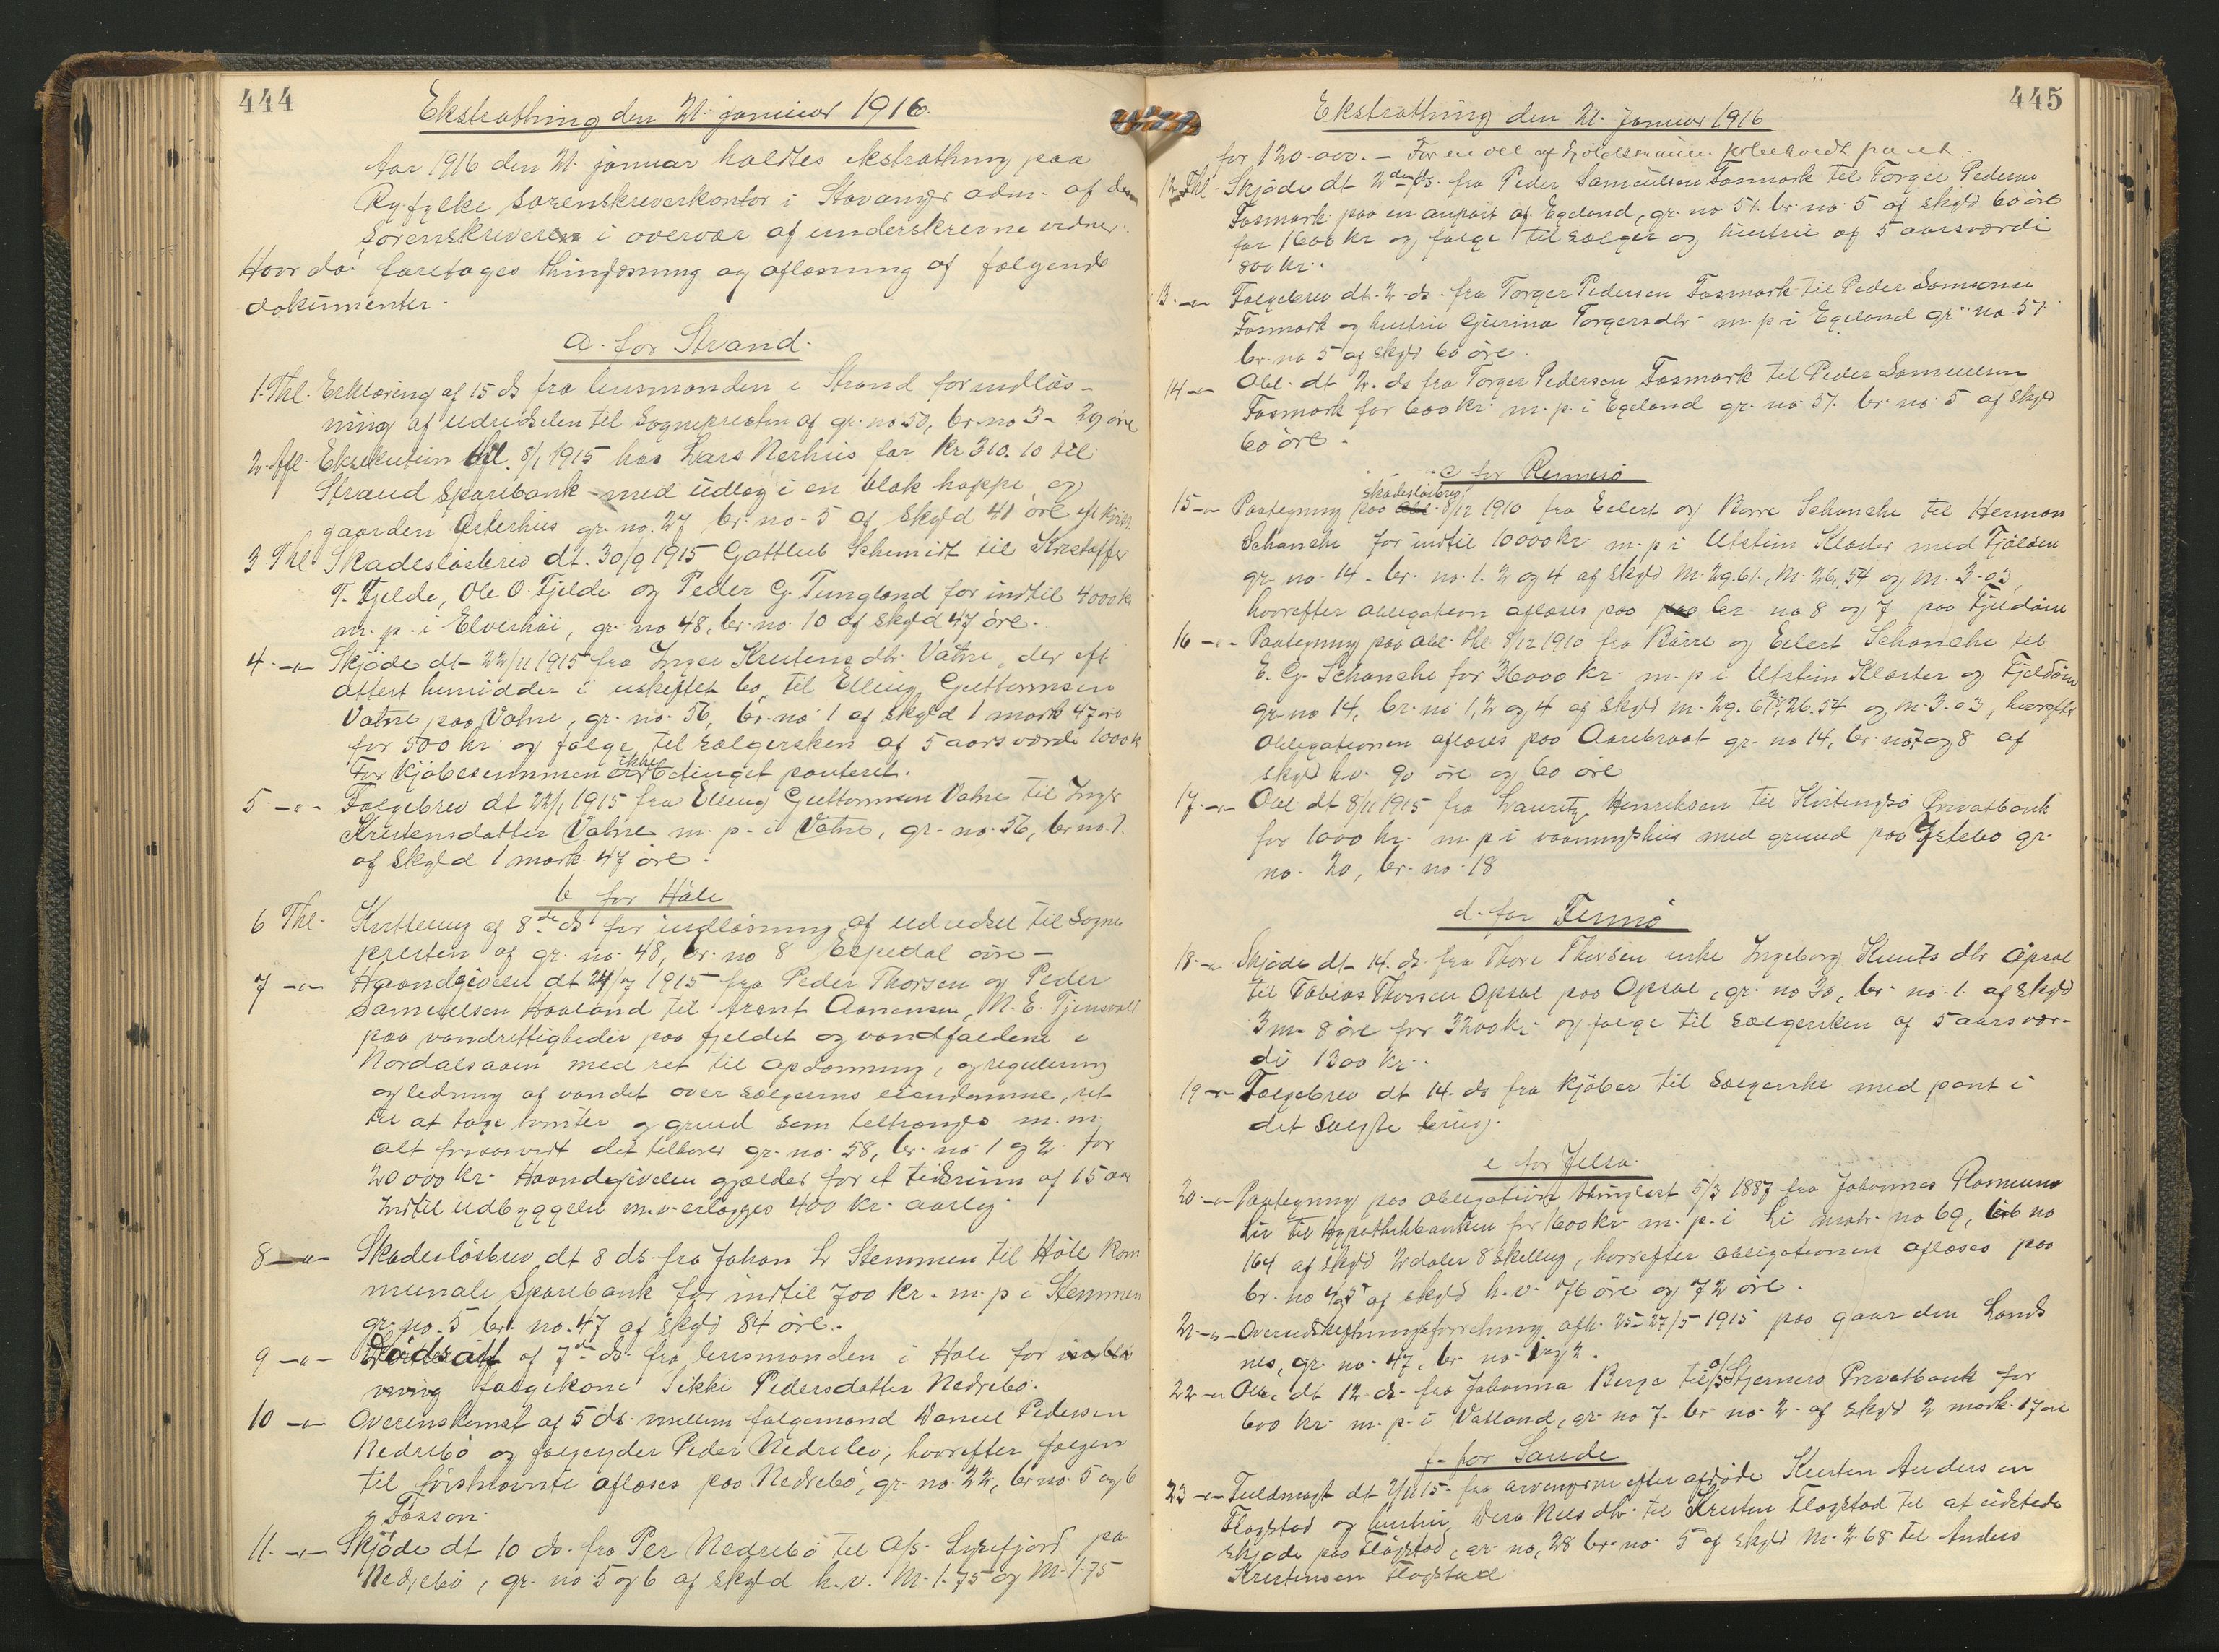 444
Ekstrathing den 21. januar 1916.
Aar 1916 den 21. januar holdtes ekstrathing paa
Ryfylke sorenskriverkontor i Stavanger adm. af den
sorenskriveren i overvær af underskrevne vidner.
Hvor da: foretoges thinglæsning og aflæsning af følgende
dokumenter.
a. for Strand.
1. Thl. Erklæring af 15 ds fra lensmanden i Strand for indløs-
ning af udredselen til Sognepresten af gr. no 50, br. no 3 - 29 øre
2. Afl. Eksekution thl. 8/1 1915 hos Lars Nerhus for Kr 310.10 til
Strand Sparebank med udlæg i en blak hoppe og
gaarden Østerhus gr. no. 27 br. no. 5 af skyld 41 øre
3. Thl Skadesløsbrev dt. 30/9 1915 Gottlieb Schmidt til Kristoffer
T. Fjelde, Ole O. Fjelde og Peder G. Tungland for indtil 4000 kr
m. p. i Elverhøi, gr. no 48, br. no. 10 af skyld 47 øre.
4. -"- Skjøde dt 22/11 1915 fra Inger Kristensdtr. Vatne, der eft
attest hensidder i uskiftet bo, til Elling Guttormsen
Vatne paa Vatne, gr. no. 56, br. no 1 af skyld 1 mark 47 øre
for 500 kr. og følge til sælgersken af 5 aarsværdi 1000 k
For kjøbesummen er ikke betinget panteret.
5. -"- Følgebrev dt 22/1 1915 fra Elling Guttormsen Vatne til Inger
Kristensdatter Vatne m. p. i Vatne, gr. no. 56, br. no. 1.
af skyld 1 mark 47 øre.
b for Høle
6 Thl. Kvittering af 8de ds for indløsning af udredsel til Sogne
presten af gr. no. 48, br. no 8 Espedal øvre -
7 -"- Haandgivelse dt 24/7 1915 fra Peder Thorsen og Peder
Samuelsen Haaland til Arent Aanensen, N. E. Tjensvold
paa vandrettigheder paa fjeldet og vandfaldene i
Nordalsaaen med ret til opdæmning, og regulering
og ledning af vandet over sælgerens eiendomme, ret
til at tage tomter og grund som tiltrænges m. m.
alt forsaavidt det tilhører gr. no. 58, br. no. 1 og 2. for
20000 kr. Haandgivelsen gjælder for et tidsrum af 15 aar
Indtil udbyggelse m. v. erlægges 400 kr. aarlig.
8 -"- Skadesløsbrev dt 8 ds. fra Johan L Stemmen til Høle Kom
munale Sparebank for indtil 700 kr. m. p i Stemmen
gr. no. 5 br. no. 47 af skyld 84 øre.
9 -"- Dødsatt af 7de ds. fra lensmanden i Høle for
følgekone Sikki Pedersdatter Nedrebø.
10 -"- Overenskomst af 5 ds. mellem følgemand Daniel Pedersen
Nedrebø og følgeyder Peder Nedrebø, hvorefter følgen
til førstnævnte aflæses paa Nedrebø, gr. no. 22, br. no. 5 og 6
11. -"- Skjøde dt 10 ds. fra Per Nedrebø til A/s. Lysefjord paa
Nedrebø, gr. no 5 og 6 af skyld h. v. M. 1.75 og M. 1.75
445
Ekstrathing den 21. januar 1916
for 120.000.- For en del af panteret.
12. Thl. Skjøde dt 2den ds. fra Peder Samuelsen Fosmark til Torger Pedersen
Fosmark paa en anpart af Egeland, gr. no 51. br. no. 5 af skyld 60 øre
for 1600 kr og følge til sælger og hustru af 5 aarsværdi
800 kr.
13. -"- Følgebrev dt. 2. ds. fra Torger Pedersen Fosmark til Peder Samsonsen
Fosmark og hustru Gjurina Torgersdtr m. p i Egeland gr. no. 51.
br. no 5 af skyld 60 øre.
14 -"- Obl. dt 2. ds fra Torger Pedersen Fosmark til Peder Samuelsen
Fosmark for 600 kr. m. p. i Egeland gr. no. 51. br. no. 5 af skyld
60 øre.
c for Rennesø
15 -"- Paategning paa skadesløsbrev 8/12 1910 fra Eilert og Børre Schanche til Herman
Schanche for indtil 10000 kr m. p i Utstein Kloster med Fjøløen
gr. no. 14 - br. no. 1. 2 og 4 af skyld M. 29.61, M. 26,54 og M. 3.03,
hvorefter obligation aflæses paa br. no 8 og 7 paa Fjeldøen
16 -"- Paategning paa obl. thl. 8/12 1910 fra Børre og Eilert Schanche til
E. G. Schanche for 36000 kr. m. p i Utstein Kloster og Fjeldøen
gr. no 14, br. no 1, 2 og 4 af skyld m. 29.61, 26.54 og m. 3.03, hvorefter
obligationen aflæses paa Aarebrot gr. no 14, br. no 7 og 8 af
skyld h.v. 90 øre og 60 øre
17. -"- Obl. dt 8/11 1915 fra Lauritz Henriksen til Kvitingsø Privatbank
for 1000 kr. m. p i vaaningshus med grund paa Ystebø gr.
no. 20, br. no. 18
d. for Finnø
18. -"- Skjøde dt 14. ds fra Thore Thorsen enke Ingeborg Knuts dtr Opsal
til Tobias Thorsen Opsal paa Opsal, gr. no 30, br. no. 1. af skyld
3 m. 8 øre for 3200 kr. og følge til sælgersken af 5 aarsvær-
di 1300 kr..
19 -"- Følgebrev dt 14. ds fra kjøber til Sælgerske med pant i
det Solgte brug.
e for Jelsa.
20. -"- Paategning paa obligation thinglæst 5/3 1887 fra Johannes Rasmussen
Lie til Hypothekbanken for 1600 kr. m. p. i Li matr. no 69, lb no
164 af skyld 2 daler 8 skelling, hvorefter obligationen aflæses paa
br. no 4, 5 af skyld h. v. 76 øre og 72 øre.
21 -"- Overudskiftningsforretning afh. 25-27/5 1915 paa gaarden Sands
nes, gr. no. 47, br. no. 1 og 2.
22 -"- Obl. dt 12. ds. fra Johanna Berge til A/s Stjernerø Privatbank for
600 kr. m. p. i Vatland, gr. no 7. br. no. 2. af skyld 2 mark. 17 øre
f. for Sande
23 -"- Fuldmagt dt 2/11 15 fra arvingerne efter afdøde Kristen Andersen
Flogstad og hustru Nilsdtr. til Kristen Flogstad til at udstede
skjøde paa Flogstad, gr. no, 28 br. no. 5 af skyld M. 2.68 til Anders
Kristensen Flogstad